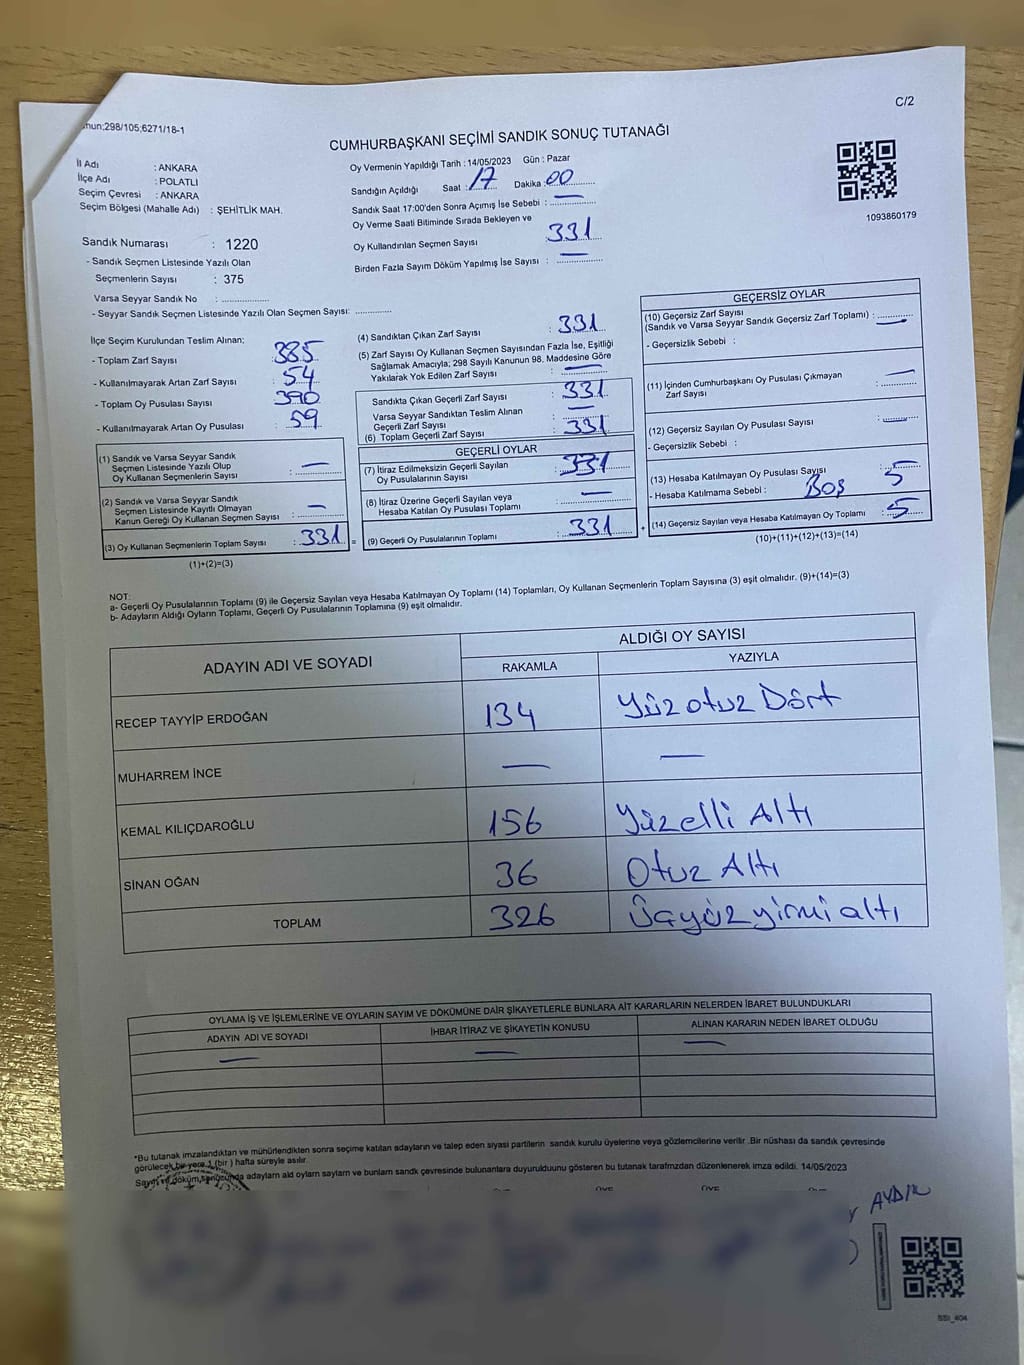 C/2
mun;298/105;6271/18-1
CUMHURBAŞKANI SEÇİMİ SANDIK SONUÇ TUTANAĞI
İl Adı : ANKARA
İlçe Adı : POLATLI
Seçim Çevresi : ANKARA
Seçim Bölgesi (Mahalle Adı) : ŞEHİTLİK MAH.
Oy Vermenin Yapıldığı Tarih : 14/05/2023 Gün : Pazar
Sandığın Açıldığı Saat : 17 Dakika : 00
Sandık Saat 17:00'den Sonra Açımış İse Sebebi : —
Oy Verme Saati Bitiminde Sırada Bekleyen ve
Oy Kullandırılan Seçmen Sayısı 331
Birden Fazla Sayım Döküm Yapılmış İse Sayısı : —
1093860179
Sandık Numarası : 1220
- Sandık Seçmen Listesinde Yazılı Olan
Seçmenlerin Sayısı : 375
Varsa Seyyar Sandık No : ..................
- Seyyar Sandık Seçmen Listesinde Yazılı Olan Seçmen Sayısı: ..............
İlçe Seçim Kurulundan Teslim Alınan;
- Toplam Zarf Sayısı : 385
- Kullanılmayarak Artan Zarf Sayısı : 54
- Toplam Oy Pusulası Sayısı : 390
- Kullanılmayarak Artan Oy Pusulası : 59
(1) Sandık ve Varsa Seyyar Sandık
Seçmen Listesinde Yazılı Olup
Oy Kullanan Seçmenlerin Sayısı : —
(2) Sandık ve Varsa Seyyar Sandık
Seçmen Listesinde Kayıtlı Olmayan
Kanun Gereği Oy Kullanan Seçmen Sayısı : —
(3) Oy Kullanan Seçmenlerin Toplam Sayısı : 331 =
(1)+(2)=(3)
(4) Sandıktan Çıkan Zarf Sayısı : 331
(5) Zarf Sayısı Oy Kullanan Seçmen Sayısından Fazla İse, Eşitliği
Sağlamak Amacıyla; 298 Sayılı Kanunun 98. Maddesine Göre
Yakılarak Yok Edilen Zarf Sayısı : —
Sandıkta Çıkan Geçerli Zarf Sayısı : 331
Varsa Seyyar Sandıktan Teslim Alınan
Geçerli Zarf Sayısı : —
(6) Toplam Geçerli Zarf Sayısı : 331
GEÇERLİ OYLAR
(7) İtiraz Edilmeksizin Geçerli Sayılan
Oy Pusulalarının Sayısı : 331
(8) İtiraz Üzerine Geçerli Sayılan veya
Hesaba Katılan Oy Pusulası Toplamı : —
(9) Geçerli Oy Pusulalarının Toplamı : 331 +
GEÇERSİZ OYLAR
(10) Geçersiz Zarf Sayısı
(Sandık ve Varsa Seyyar Sandık Geçersiz Zarf Toplamı) : —
- Geçersizlik Sebebi :
(11) İçinden Cumhurbaşkanı Oy Pusulası Çıkmayan
Zarf Sayısı : —
(12) Geçersiz Sayılan Oy Pusulası Sayısı : —
- Geçersizlik Sebebi :
(13) Hesaba Katılmayan Oy Pusulası Sayısı : 5
- Hesaba Katılmama Sebebi : Boş
(14) Geçersiz Sayılan veya Hesaba Katılmayan Oy Toplamı : 5
(10)+(11)+(12)+(13)=(14)
NOT:
a- Geçerli Oy Pusulalarının Toplamı (9) ile Geçersiz Sayılan veya Hesaba Katılmayan Oy (14) Toplamları, Oy Kullanan Seçmenlerin Toplam Sayısına (3) eşit olmalıdır. (9)+(14)=(3)
b- Adayların Aldığı Oyların Toplamı, Geçerli Oy Pusulalarının Toplamına (9) eşit olmalıdır.
ADAYIN ADI VE SOYADI ALDIĞI OY SAYISI
RAKAMLA YAZIYLA
RECEP TAYYİP ERDOĞAN 134 Yüz otuz Dört
MUHARREM İNCE — —
KEMAL KILIÇDAROĞLU 156 Yüzelli Altı
SİNAN OĞAN 36 Otuz Altı
TOPLAM 326 Üçyüz yirmi altı
OYLAMA İŞ VE İŞLEMLERİNE VE OYLARIN SAYIM VE DÖKÜMÜNE DAİR ŞİKAYETLERLE BUNLARA AİT KARARLARIN NELERDEN İBARET BULUNDUKLARI
ADAYIN ADI VE SOYADI İHBAR İTİRAZ VE ŞİKAYETİN KONUSU ALINAN KARARIN NEDEN İBARET OLDUĞU
— — —
*Bu tutanak imzalandıktan ve mühürlendikten sonra seçime katılan adayların ve talep eden siyasi partilerin sandık kurulu üyelerine veya gözlemcilerine verilir .Bir nüshası da sandık çevresinde
görülecek bir yere 1 (bir ) hafta süreyle asılır.
Sayım ve döküm sonucunda adayların ald oyların saylarn ve bunların sandk çevresinde bulunanlara duyurulduunu gösteren bu tutanak tarafmzdan düzenlenerek imza edildi. 14/05/2023
AYDIN
SSI_404